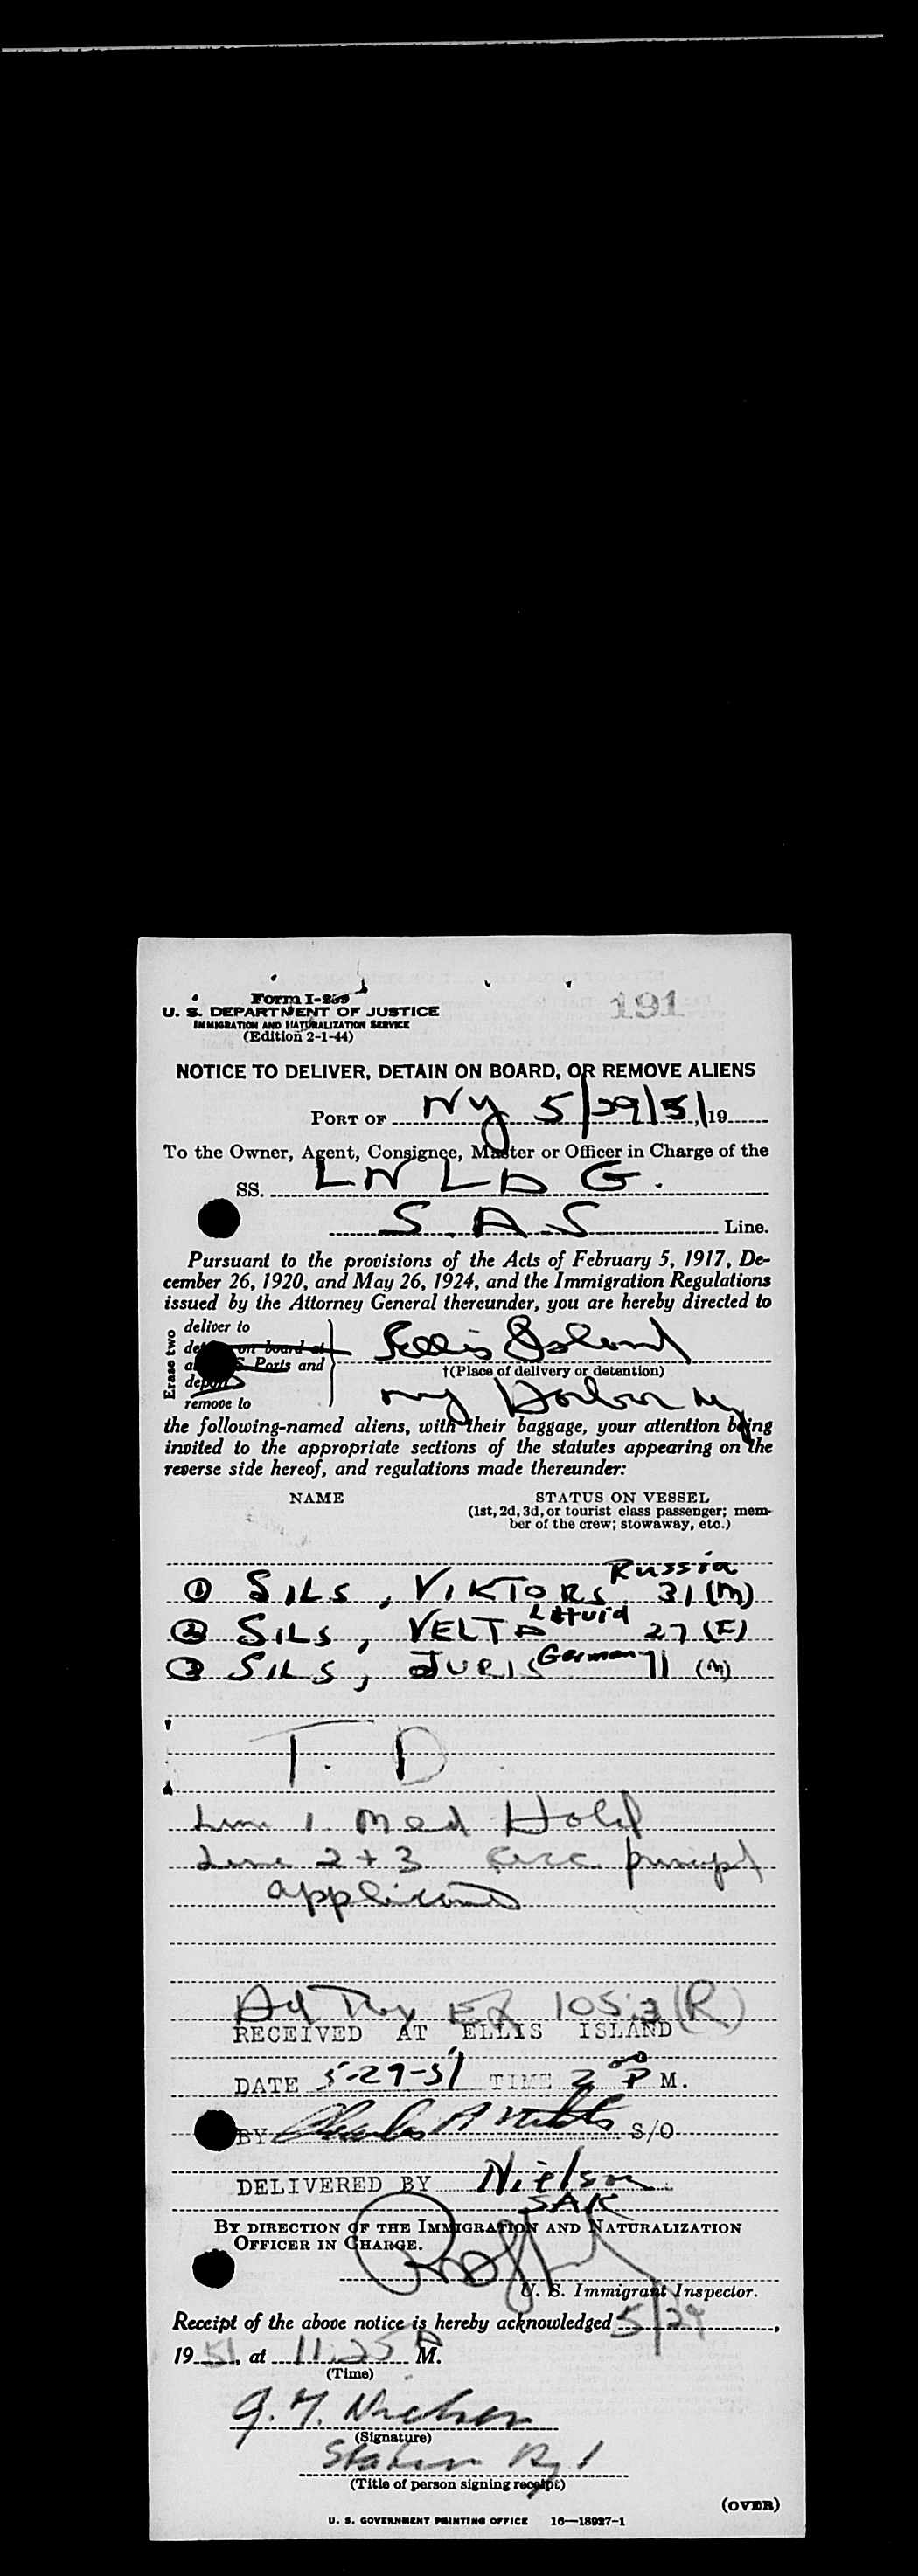 Form I-259
191
U. S. DEPARTMENT OF JUSTICE
IMMIGRATION AND NATURALIZATION SERVICE
(Edition 2-1-44)
NOTICE TO DELIVER, DETAIN ON BOARD, OR REMOVE ALIENS
PORT OF NY 5/29/51, 19
To the Owner, Agent, Consignee, Master or Officer in Charge of the
SS. LN LDG.
S.A.S Line.
Pursuant to the provisions of the Acts of February 5, 1917, De-
cember 26, 1920, and May 26, 1924, and the Immigration Regulations
issued by the Attorney General thereunder, you are hereby directed to
Erase two
deliver to
on board at
Ports and
deport
remove to
Ellis Island
†(Place of delivery or detention)
NY Harbor NY
the following-named aliens, with their baggage, your attention being
invited to the appropriate sections of the statutes appearing on the
reverse side hereof, and regulations made thereunder:
NAME STATUS ON VESSEL
(1st, 2d, 3d, or tourist class passenger; mem-
ber of the crew; stowaway, etc.)
Russia
① SILS, VIKTORS 31 (M)
② SILS, VELTA 27 (F)
③ SILS, JURIS Germany 11 (M)
T. D
Line 1 Med Hold
Line 2 + 3 acc principl
applicant
Ex 105.3 (R)
RECEIVED AT ELLIS ISLAND
DATE 5-29-51 TIME 2 00 P M.
BY Charles S/O
DELIVERED BY Nielson
SAS
BY DIRECTION OF THE IMMIGRATION AND NATURALIZATION
OFFICER IN CHARGE.
U. S. Immigrant Inspector.
Receipt of the above notice is hereby acknowledged 5/29,
1951, at 11:25 A M.
(Time)
(Signature)
(Title of person signing receipt)
(OVER)
U. S. GOVERNMENT PRINTING OFFICE 16—18927-1